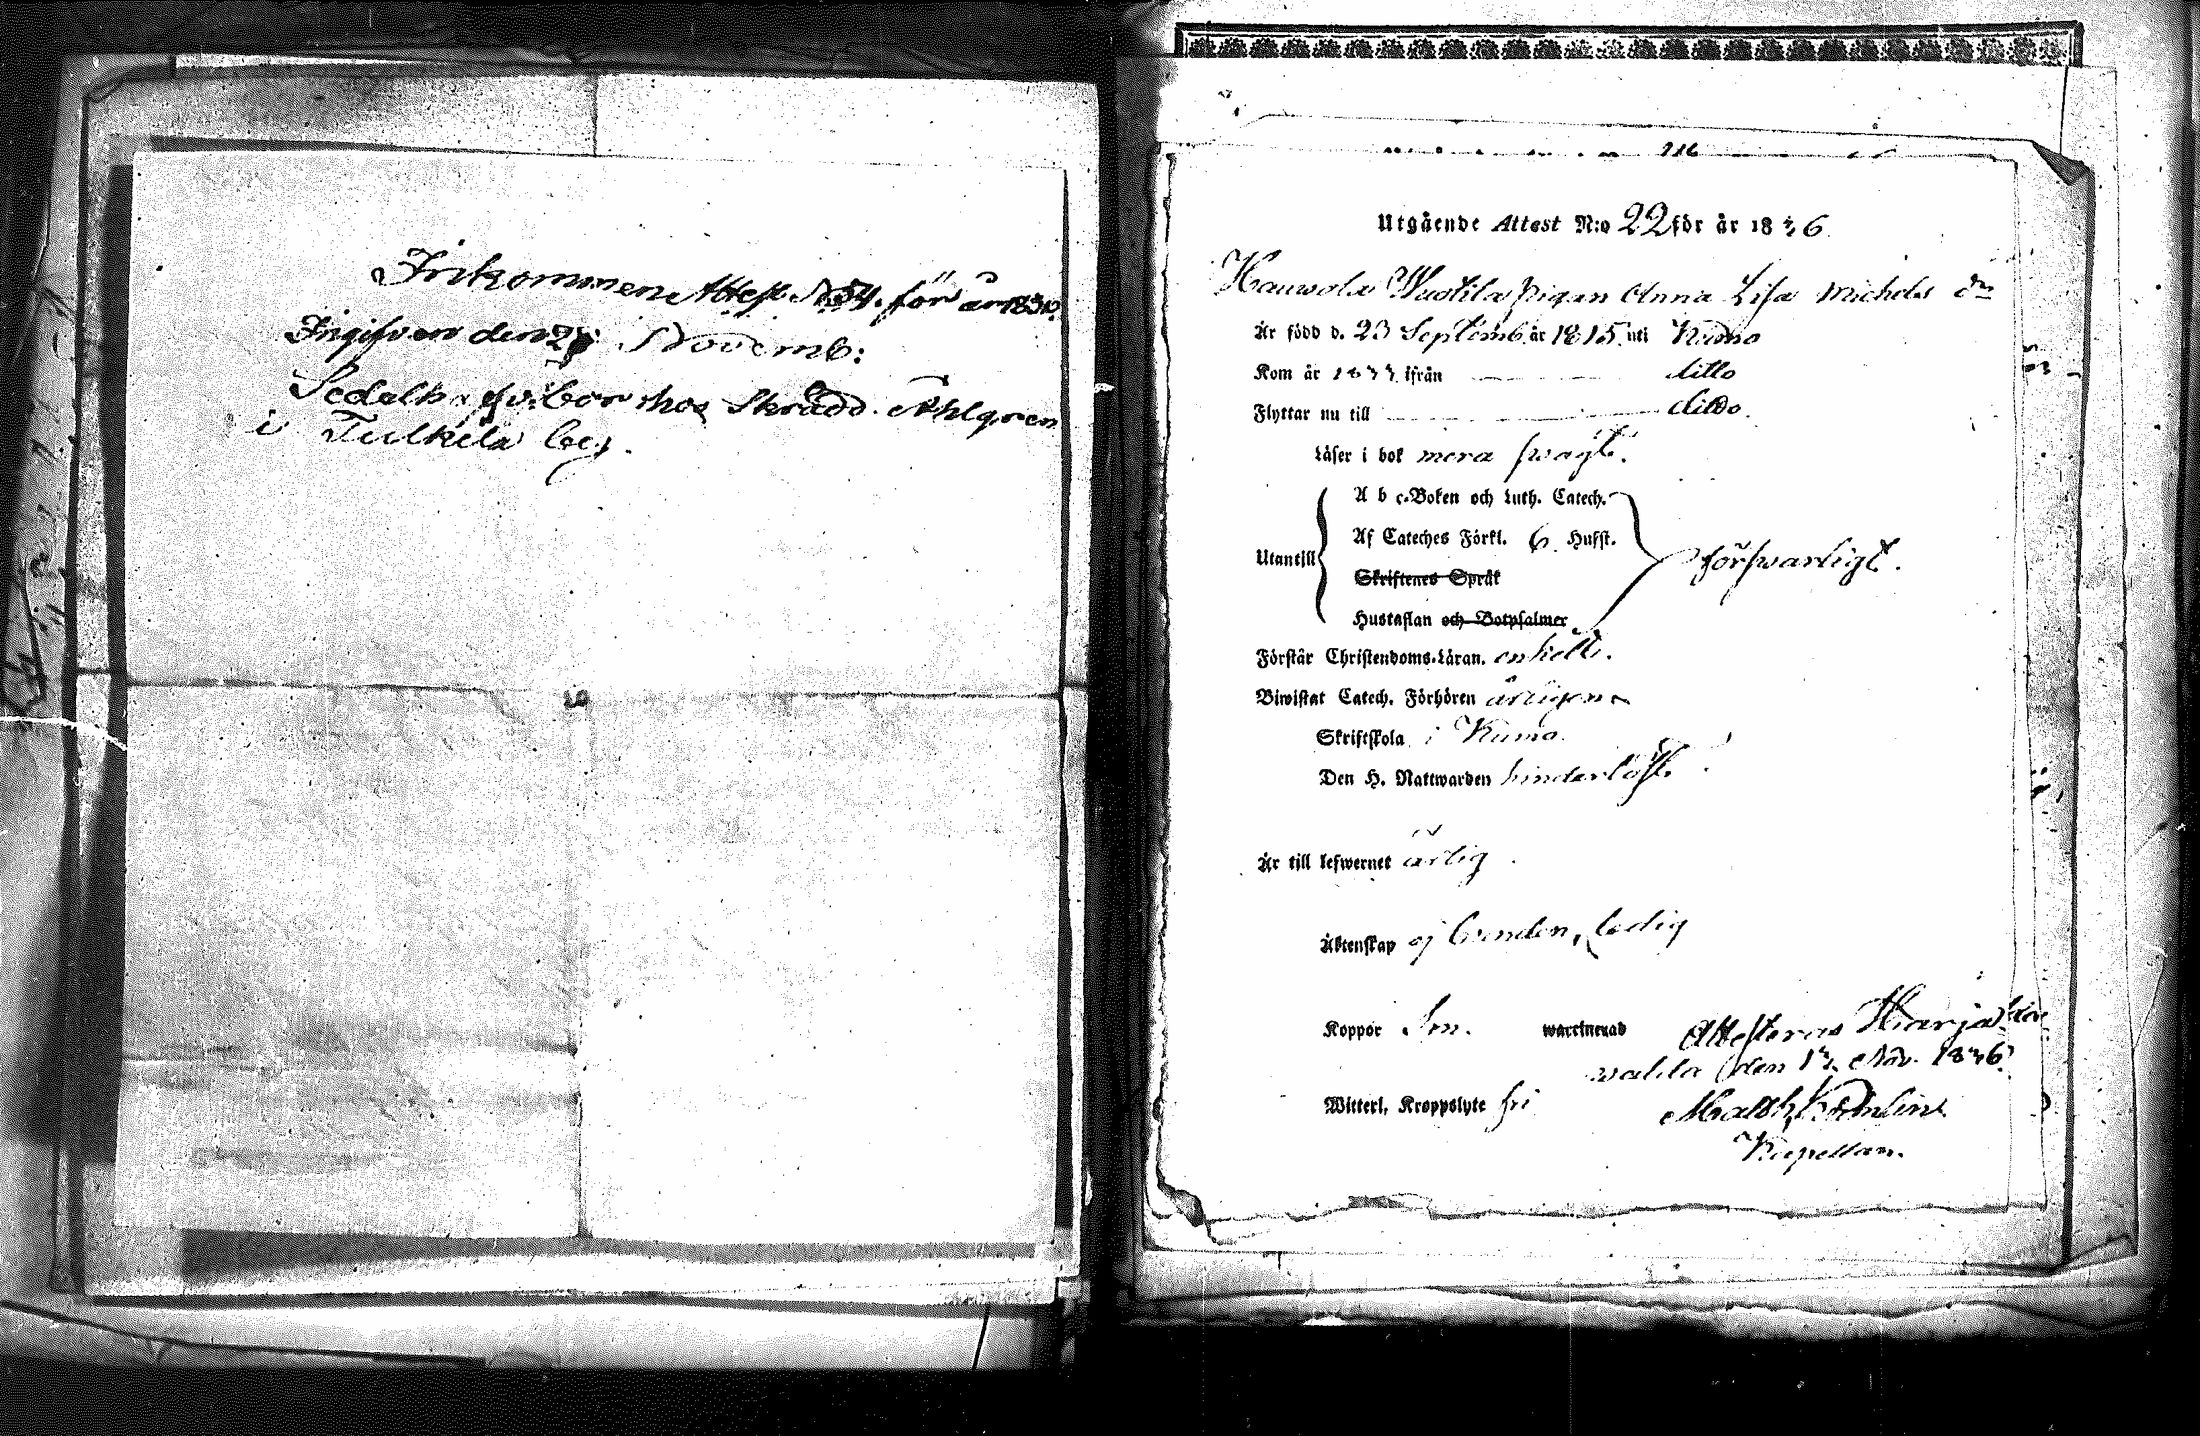 Inkommen Attest No 54. för år 1836.
Ingifven den 27 Novemb:
Sedelh. bor hos Skrädd. Ahlgren
i Tulkila by.
Utgående Attest N:o 22 för år 1836
Hauwola Wuotila pigan Anna Lisa Michels dr
Är född d. 23 Septemb. år 1815 uti Kumo
Kom år 1833 ifrån ditto
Flyttar nu till ditto.
Läser i bok mera swagt.
A b c-Boken och Luth. Catech.
Af Cateches Förkl. 6 Hufst.
Utantill försvarligt.
Skriftenes Språk
Hustaflan och Botpsalmer
Förstår Christendoms-Läran. enkelt.
Biwistat Catech. Förhören årligen
Skriftskola i Kumo.
Den H. Nattwarden hinderlöst.
Är till lefwernet ärlig.
Äktenskap ej bunden, ledig
Koppor waccinerad Attesteras Harja
walda den 13 Nov. 1836.
Witterl. Kroppslyte fri
Kapellan.